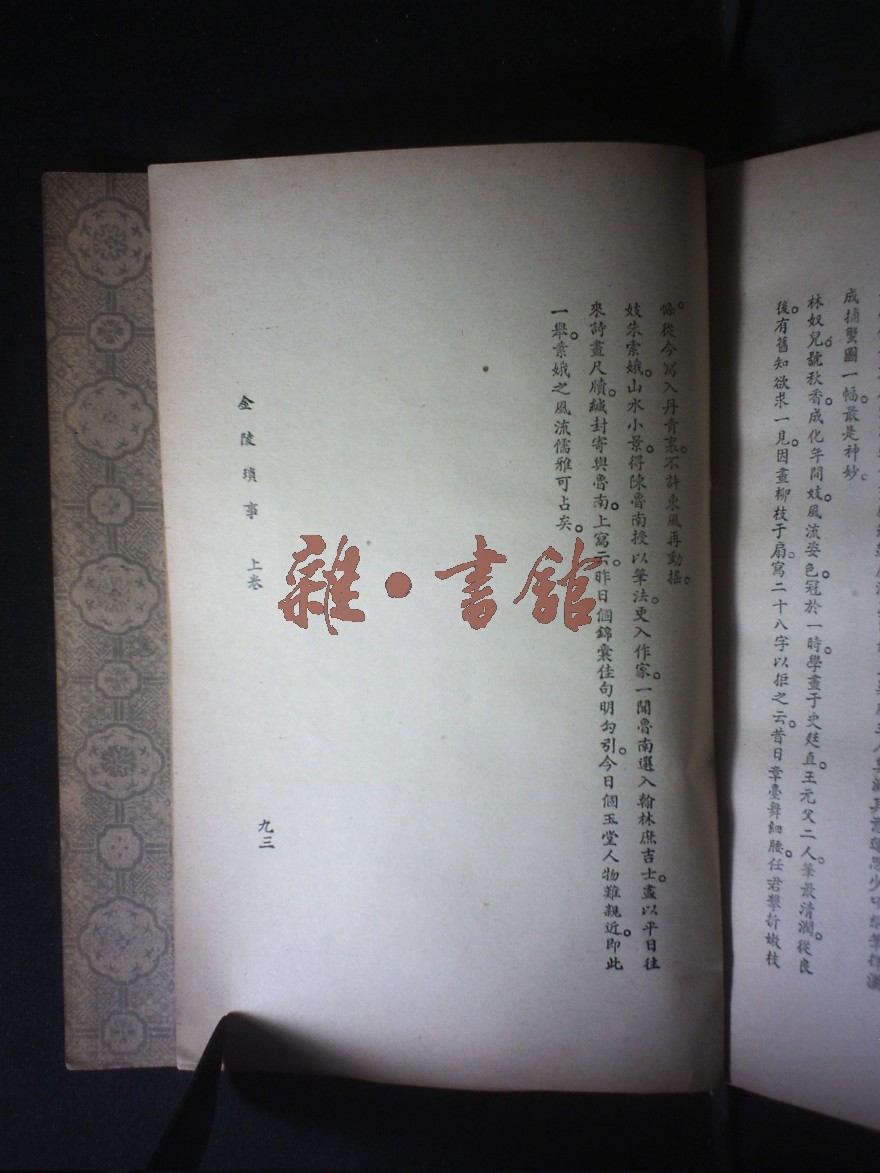 成摘蟹圖一幅。最是神妙。
林奴兒。號秋香。成化年間妓。風流姿色。冠於一時。學畫于史廷直王元父二人。筆最清潤。從良
後。有舊知欲求一見。因畫柳枝于扇。寫二十八字以拒之云。昔日章臺舞細腰。任君攀折嫩枝
條。從今寫入丹青裏。不許東風再動搖。
妓朱素娥。山水小景。得陳魯南授以筆法。更入作家。一聞魯南選入翰林庶吉士。盡以平日往
來詩畫尺牘。緘封寄與魯南。上寫云。昨日個錦囊佳句明勾引。今日個玉堂人物難親近。即此
一舉。素娥之風流儒雅可占矣。
金陵瑣事 上卷
九三
雜·書館